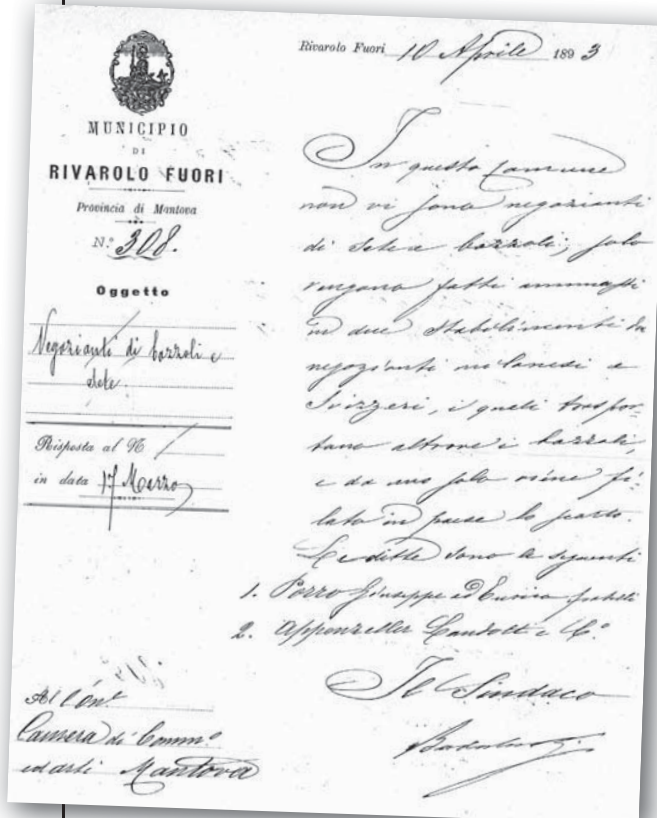 MUNICIPIO
DI
RIVAROLO FUORI
Provincia di Mantova
N.° 308.
Oggetto
Negozianti di bozzoli e
sete
Risposta al N.
in data 17 Marzo
Rivarolo Fuori 10 Aprile 1893
In questo Comune
non vi sono negozianti
di sete e bozzoli; solo
vengono fatti ammassi
in due stabilimenti da
negozianti milanesi e
Svizzeri, i quali traspor-
tano altrove i bozzoli,
e da uno solo viene fi-
lato in paese lo scarto.
Le ditte sono le seguenti
1. Porro Giuseppe ed Enrico fratelli
2. Appenzeller Gandolt e C.°
Il Sindaco
All'On.
Camera di Comm.°
ed arti Mantova